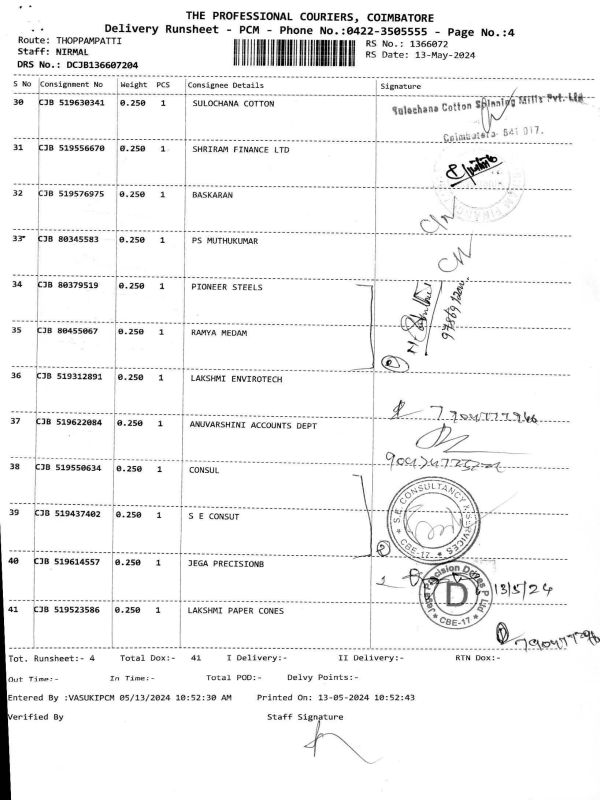 THE PROFESSIONAL COURIERS, COIMBATORE
Delivery Runsheet - PCM - Phone No.:0422-3505555 - Page No.:4
Route: THOPPAMPATTI RS No.: 1366072
Staff: NIRMAL RS Date: 13-May-2024
DRS No.: DCJB136607204
S No Consignment No Weight PCS Consignee Details Signature
30 CJB 519630341 0.250 1 SULOCHANA COTTON
Sulochana Cotton Spinning Mills Pvt. Ltd
Coimbatore 641 017.
31 CJB 519556670 0.250 1 SHRIRAM FINANCE LTD
32 CJB 519576975 0.250 1 BASKARAN
33 CJB 80345583 0.250 1 PS MUTHUKUMAR
34 CJB 80379519 0.250 1 PIONEER STEELS
35 CJB 80455067 0.250 1 RAMYA MEDAM
2
36 CJB 519312891 0.250 1 LAKSHMI ENVIROTECH
37 CJB 519622084 0.250 1 ANUVARSHINI ACCOUNTS DEPT
38 CJB 519550634 0.250 1 CONSUL
S.E. CONSULTANCY SERVICES
CBE-17
39 CJB 519437402 0.250 1 S E CONSUT
2
40 CJB 519614557 0.250 1 JEGA PRECISIONB
Jega Precision Dones P Ltd
D
CBE-17
13/5/24
41 CJB 519523586 0.250 1 LAKSHMI PAPER CONES
Tot. Runsheet:- 4 Total Dox:- 41 I Delivery:- II Delivery:- RTN Dox:-
Out Time:- In Time:- Total POD:- Delvy Points:-
Entered By :VASUKIPCM 05/13/2024 10:52:30 AM Printed On: 13-05-2024 10:52:43
Verified By Staff Signature